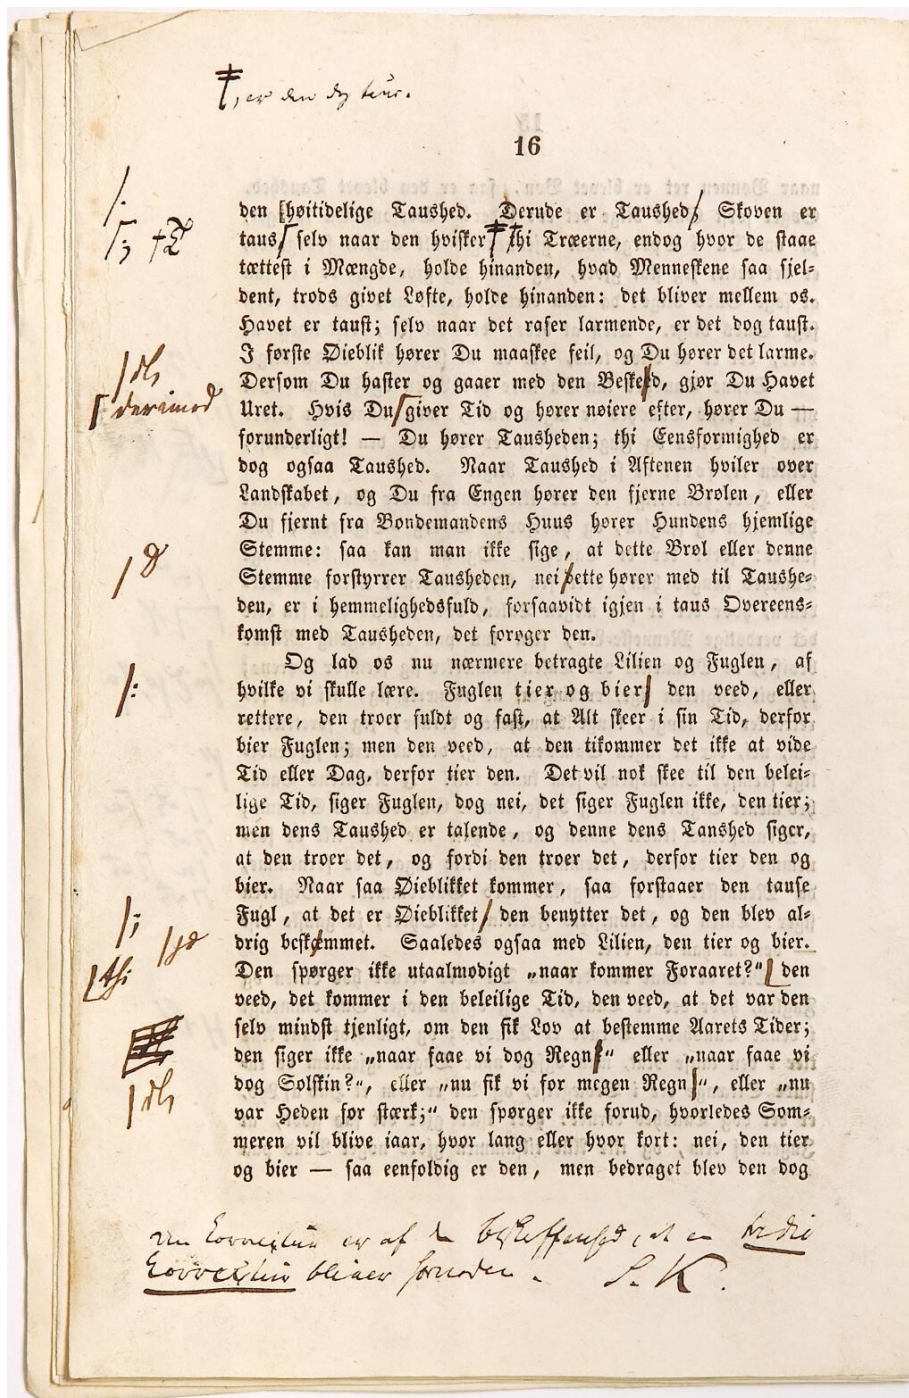 , er den dog taus.
16
den høitidelige Taushed. Derude er Taushed, Skoven er
taus selv naar den hvisker thi Træerne, endog hvor de staae
tættest i Mængde, holde hinanden, hvad Menneskene saa sjel-
dent, trods givet Løfte, holde hinanden: det bliver mellem os.
Havet er taust; selv naar det raser larmende, er det dog taust.
I første Øieblik hører Du maaskee feil, og Du hører det larme.
Dersom Du haster og gaaer med den Beskeed, gjør Du Havet
derimod
Uret. Hvis Du giver Tid og hører nøiere efter, hører Du —
forunderligt! — Du hører Tausheden; thi Eensformighed er
dog ogsaa Taushed. Naar Taushed i Aftenen hviler over
Landskabet, og Du fra Engen hører den fjerne Brølen, eller
Du fjernt fra Bondemandens Huus hører Hundens hjemlige
Stemme: saa kan man ikke sige, at dette Brøl eller denne
Stemme forstyrrer Tausheden, nei dette hører med til Taushe-
den, er i hemmelighedsfuld, forsaavidt igjen i taus Overeens-
komst med Tausheden, det forøger den.
Og lad os nu nærmere betragte Lilien og Fuglen, af
hvilke vi skulle lære. Fuglen tier og bier den veed, eller
rettere, den troer fuldt og fast, at Alt skeer i sin Tid, derfor
bier Fuglen; men den veed, at den tikommer det ikke at vide
Tid eller Dag, derfor tier den. Det vil nok skee til den belei-
lige Tid, siger Fuglen, dog nei, det siger Fuglen ikke, den tier;
men dens Taushed er talende, og denne dens Tanshed siger,
at den troer det, og fordi den troer det, derfor tier den og
bier. Naar saa Øieblikket kommer, saa forstaaer den tause
Fugl, at det er Øieblikket, den benytter det, og den blev al-
;
drig beskæmmet. Saaledes ogsaa med Lilien, den tier og bier.
thi
Den spørger ikke utaalmodigt „naar kommer Foraaret?“ den
veed, det kommer i den beleilige Tid, den veed, at det var den
selv mindst tjenligt, om den fik Lov at bestemme Aarets Tider;
den siger ikke „naar faae vi dog Regn“ eller „naar faae vi
dog Solskin?“, eller „nu fik vi for megen Regn“, eller „nu
var Heden for stærk;“ den spørger ikke forud, hvorledes Som-
meren vil blive iaar, hvor lang eller hvor kort: nei, den tier
og bier — saa eenfoldig er den, men bedraget blev den dog
er af den Beskaffenhed, at en tredie
Correctur bliver fornøden. S. K.